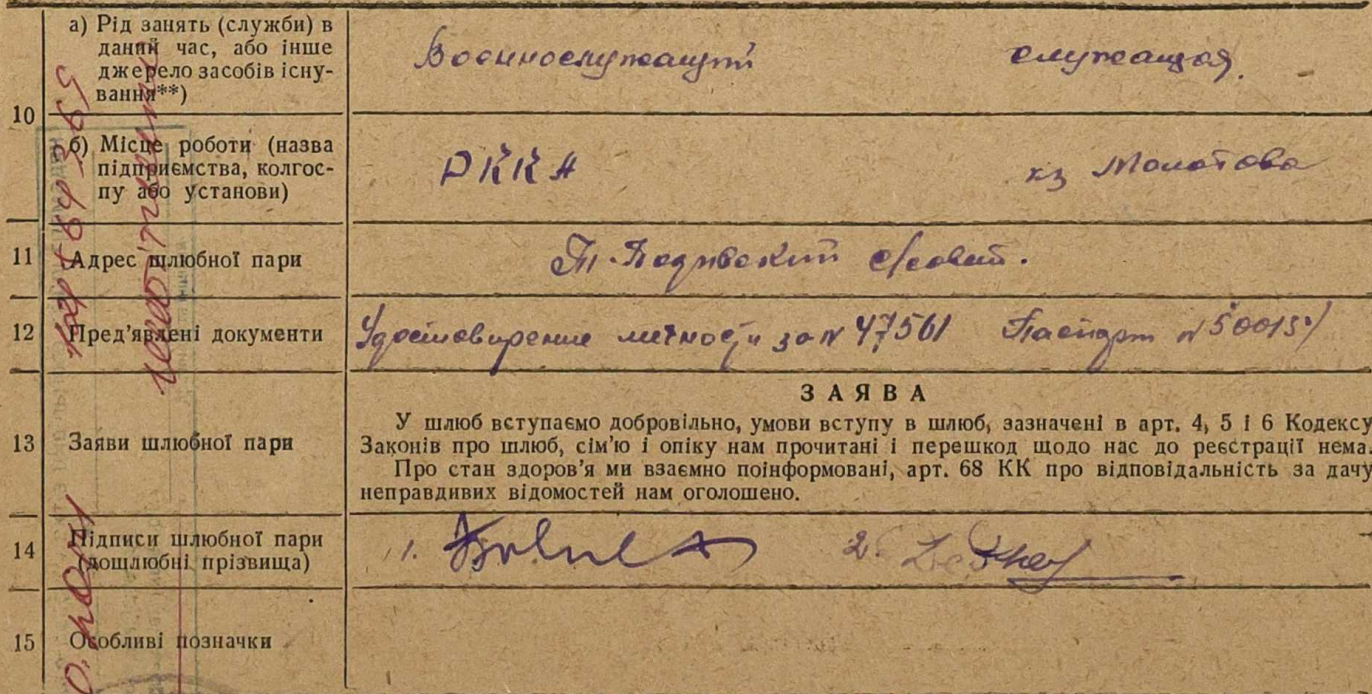 10
а) Рід занять (служби) в
даний час, або інше
джерело засобів існу-
вання**)
Военнослужащий служащая.
б) Місце роботи (назва
підприємства, колгос-
пу або установи)
РККА кз Молотова
11 Адрес шлюбної пари
12 Пред'явлені документи Удостовирение личности за № 47561 Паспорт №
ЗАЯВА
У шлюб вступаємо добровільно, умови вступу в шлюб, зазначені в арт. 4, 5 і 6 Кодексу
13 Заяви шлюбної пари Законів про шлюб, сім'ю і опіку нам прочитані і перешкод щодо нас до реєстрації нема.
Про стан здоров'я ми взаємно поінформовані, арт. 68 КК про відповідальність за дачу
неправдивих відомостей нам оголошено.
14 Підписи шлюбної пари
(дошлюбні прізвища) 1. 2.
15 Особливі позначки